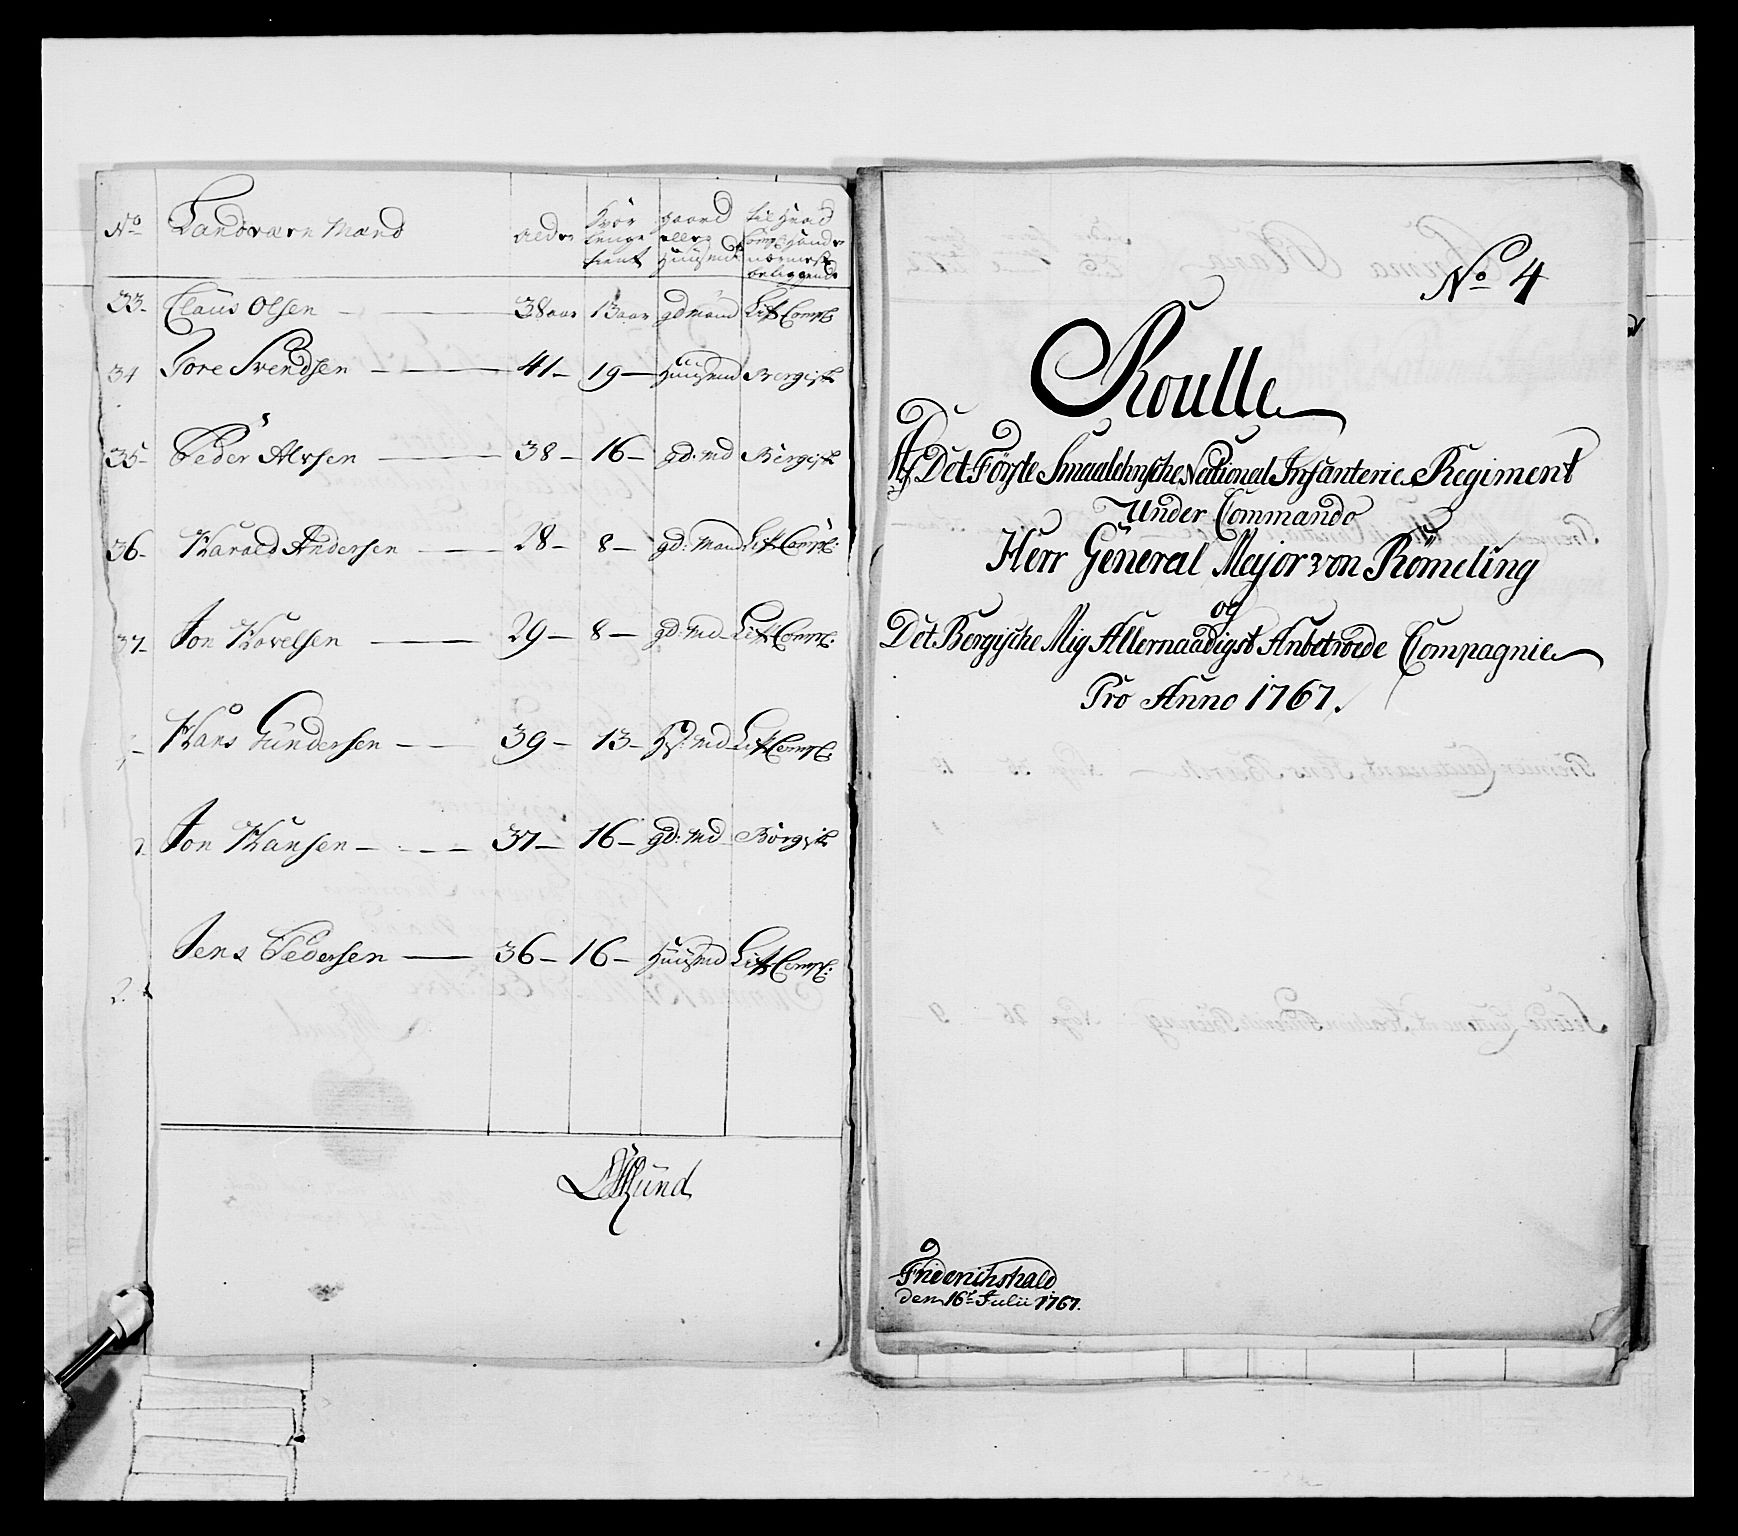 No Landværn Mænd alder hvor længe tient gaard eller Huusmd til hvad Comp: hand er nærmest beliggende
33- Claus Olsen — 38 aar 13 aar gd mand Lif Comp:
34 Tore Svendsen — 41- 19- Huusmd Bergisk
35- Peder Alvsen — 38- 16- gd: md Bergisk
36- Harald Andersen — 28- 8- gd: mand Lif Comp:
37- Jon Havelsen — 29- 8- gd: md Lif Comp:
Hans Gundersen — 39- 13- Hs: md Lif Comp:
Jon Hansen — 37- 16- gd: md Bergisk
Jens Pedersen — 36- 16- Huusmd Lif Comp:
Münd
No 4
Roulle
Af Det Förste Smaalehnsche National Infanterie Regiment
Under Commando
Herr General Major von Römeling
og
Det Bergische Mig Allernaadigst Anbetroede Compagnie
Pro Anno 1767.
Friderichshald
den 16t Julii 1767.